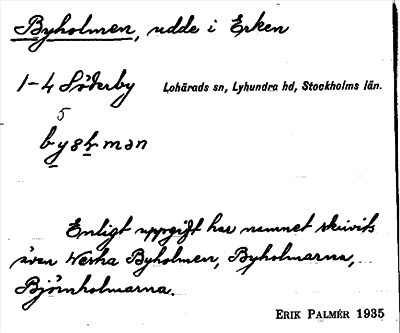 Byholmen, udde i Erken
1-4 Söderby Lohärads sn, Lyhundra hd, Stockholms län.
5
Enligt uppgift har namnet skrivits
även Westra Byholmen, Byholmarna,
Björnholmarna.
ERIK PALMÉR 1935